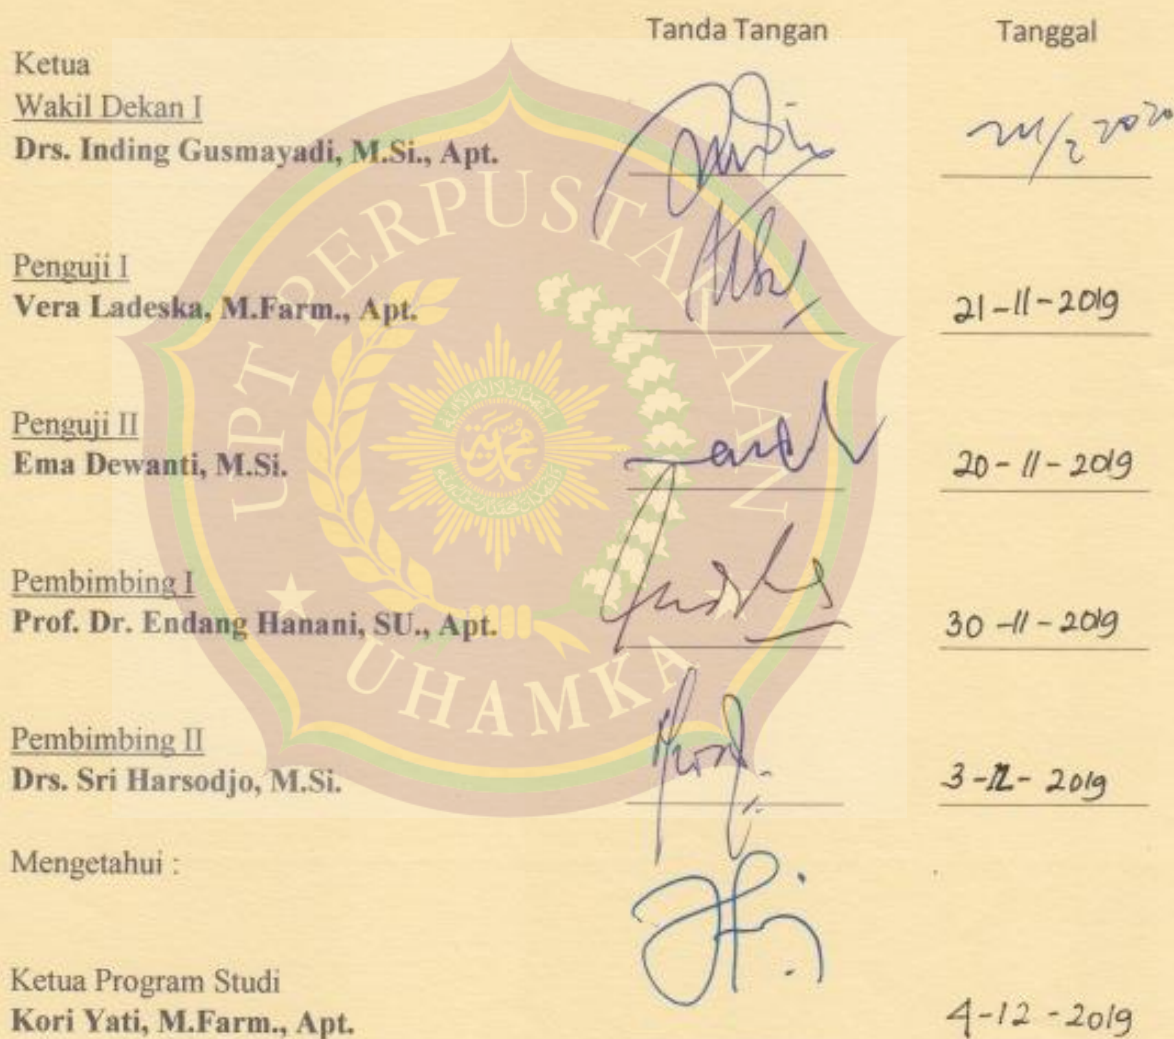 Tanda Tangan Tanggal
Ketua
Wakil Dekan I
Drs. Inding Gusmayadi, M.Si., Apt.
UPT PERPUSTAKAAN
Penguji I
Vera Ladeska, M.Farm., Apt. 21-11-2019
Penguji II
Ema Dewanti, M.Si. 20-11-2019
Pembimbing I
Prof. Dr. Endang Hanani, SU., Apt. 30-11-2019
UHAMKA
Pembimbing II
Drs. Sri Harsodjo, M.Si. 3-12-2019
Mengetahui :
Ketua Program Studi
Kori Yati, M.Farm., Apt. 4-12-2019